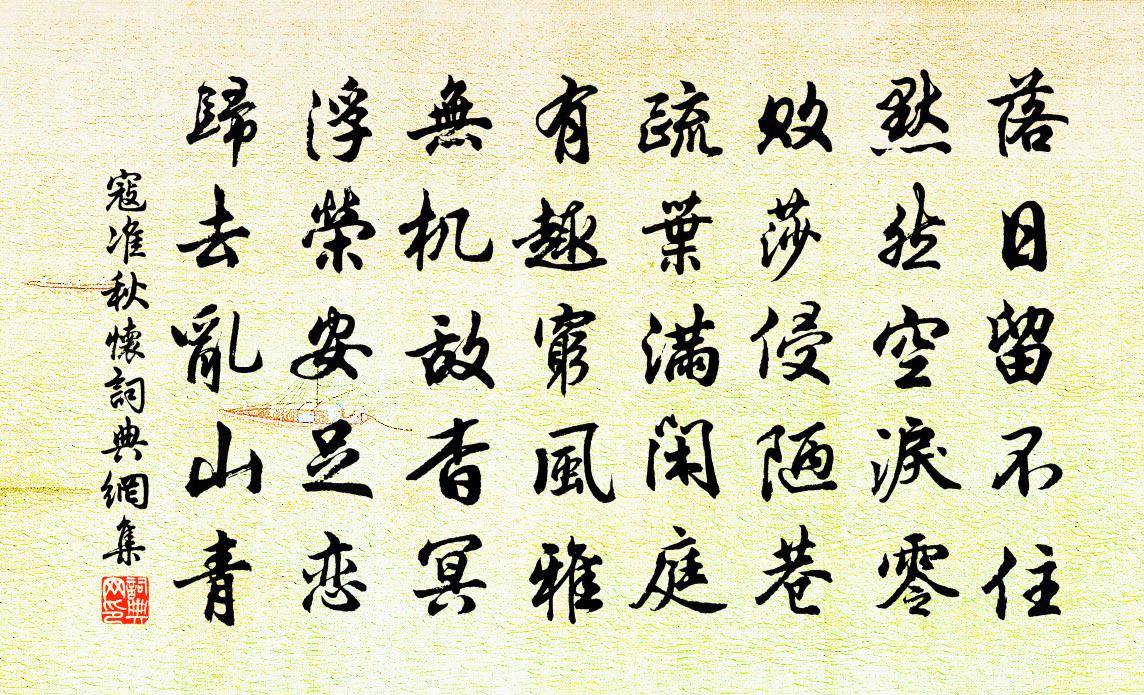 落日留不住
黙然空淚零
敗莎侵陋巷
疏葉滿閑庭
有趣窮風雅
無机敌杳冥
浮榮安足恋
歸去亂山青
寇准秋懷詞典網集
詞典
网印